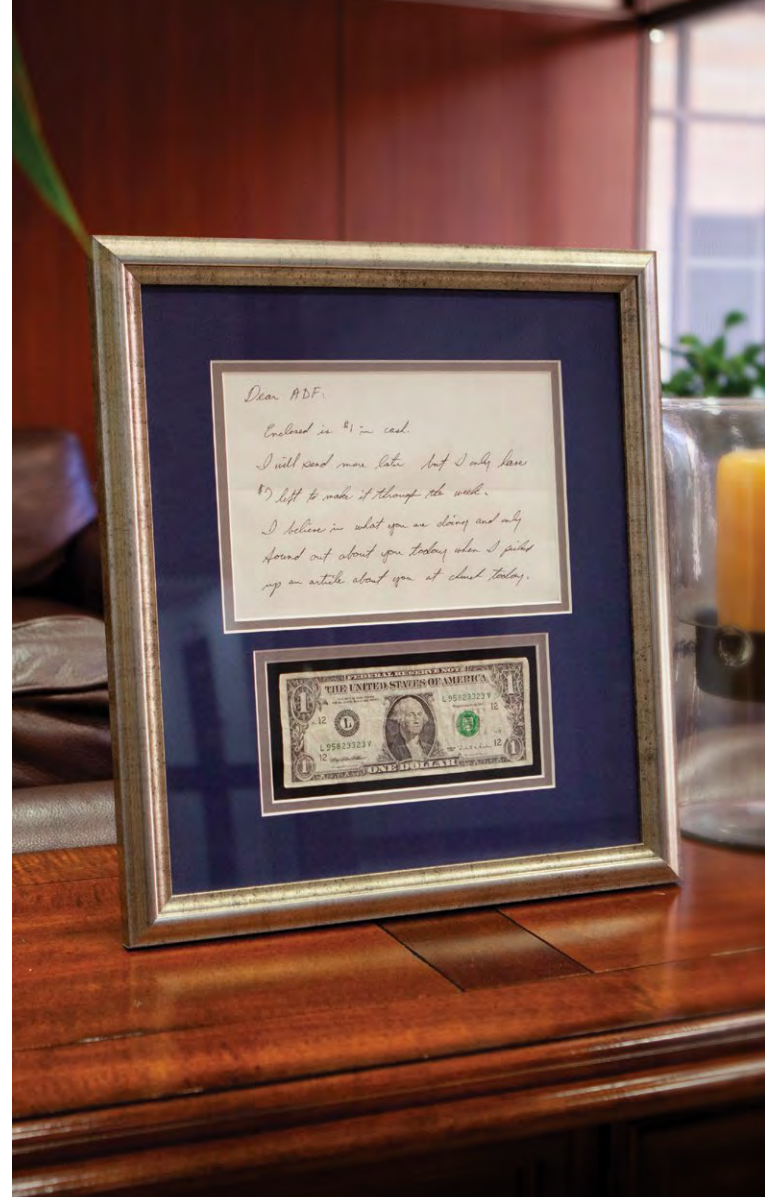 Dear ADF:
Enclosed is $1 in cash.
I will send more later but I only have
$7 left to make it through the week.
I believe in what you are doing and only
found out about you today when I picked
up an article about you at church today.
FEDERAL RESERVE NOTE
THE UNITED STATES OF AMERICA
L 95823323 Y
12
L
12
L 95823323 Y
12
12
ONE DOLLAR
1
1
1
1